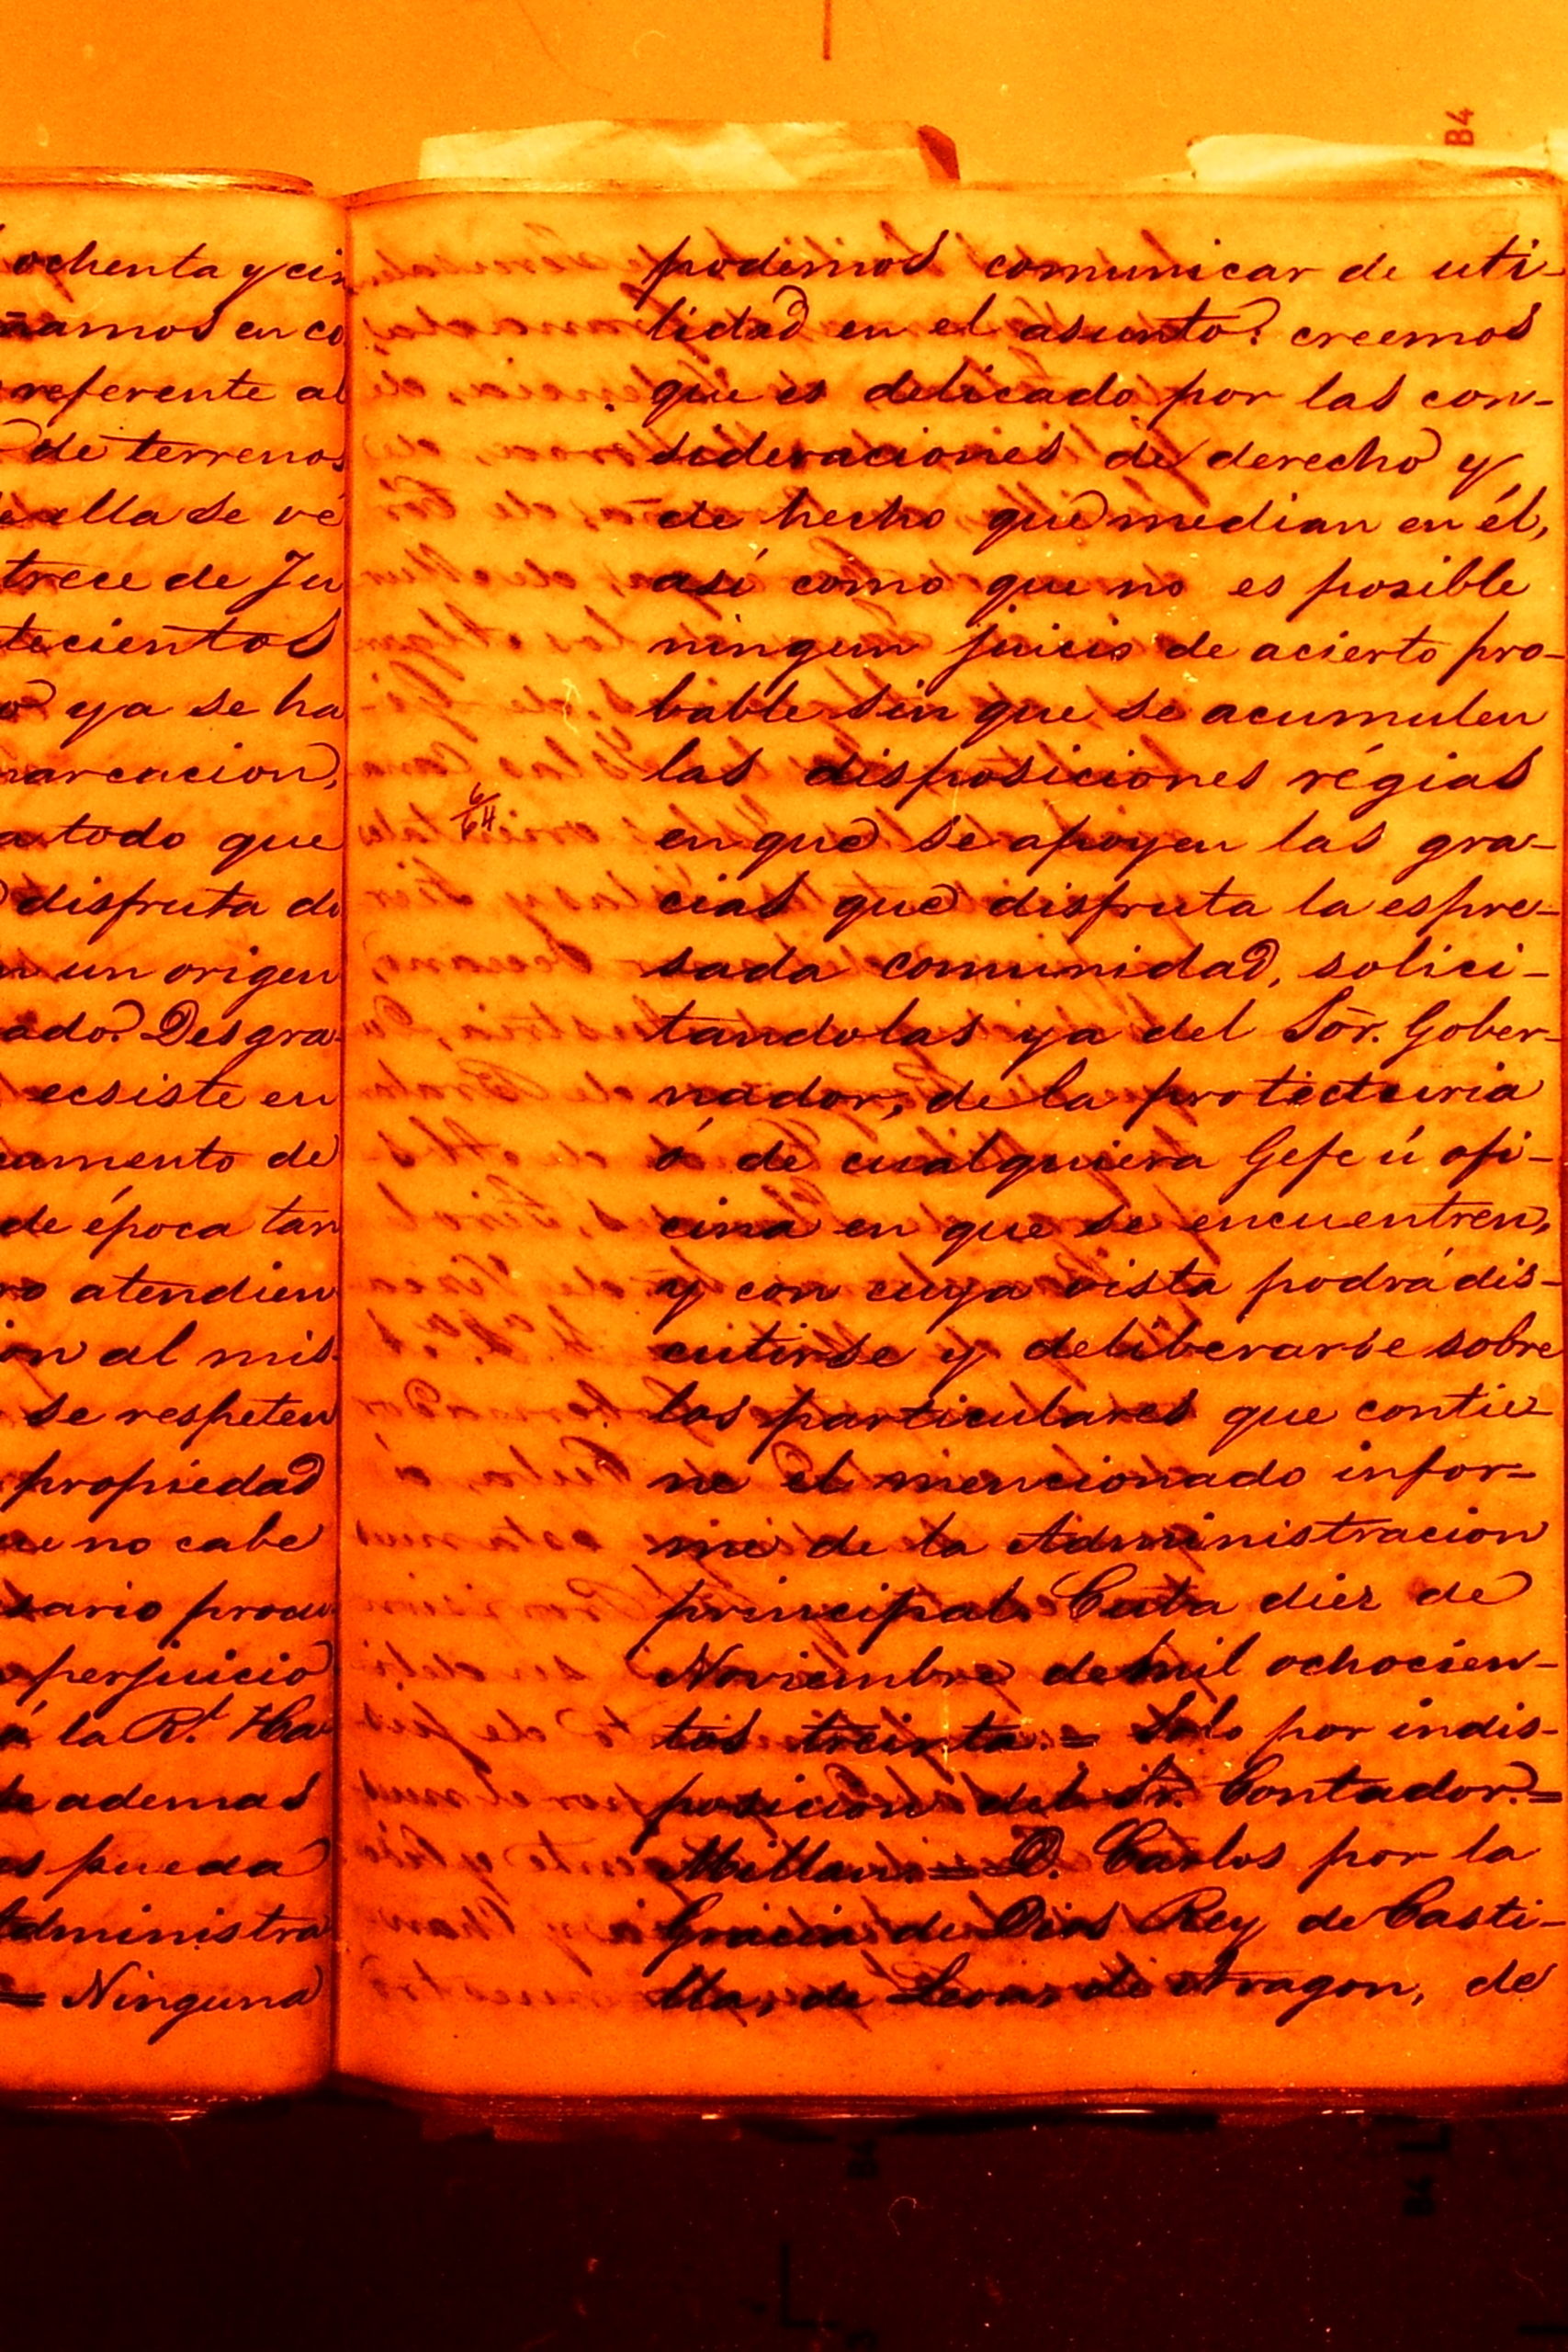 ochenta y cin
ñamos en co
referente al
de terrenos
ella se vé
trece de Ju
tecientos
ya se ha
marcacion,
a todo que
disfruta de
un origen
ado. Desgra-
ecsiste en
de
de época tan
atendien
al mis-
se respeten
propiedad
no cabe
sario produ
perjuicio
á la Rl. Ha
ademas
pueda
Administra
= Ninguna
podemos comunicar de uti-
lidad en el asunto: creemos
que es delicado por las con-
sideraciones de derecho y
de hecho que median en él,
así como que no es posible
ningun juicio de acierto pro-
bable sin que se acumulen
las disposiciones régias
6/64
en que se apoyen las gra-
cias que disfruta la espre-
sada comunidad, solici-
tandolas ya del Sõr. Gober-
nador, de la protecturia
ó de cualquiera Gefe ú ofi-
cina en que se encuentren,
y con cuya vista podrá dis-
cutirse y deliberarse sobre
los particulares que contie-
ne el mencionado infor-
me de la Administracion
principal. Cuba diez de
Noviembre de mil ochocien-
tos treinta. = Solo por indis-
posicion del Sr. Contador. =
Millan. = D. Carlos por la
Gracia de Dios Rey de Casti-
lla, de Leon, de Aragon, de
B4